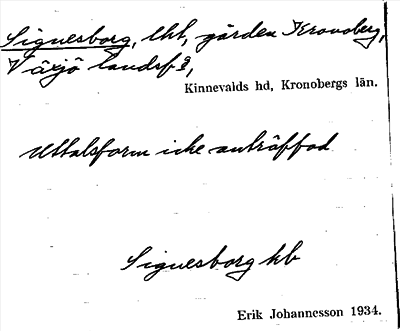 Signesborg, lht, gården Kronoberg,
Växjö landsf.,
Kinnevalds hd, Kronobergs län.
Uttalsform icke anträffad
Signesborg hb
Erik Johannesson 1934.